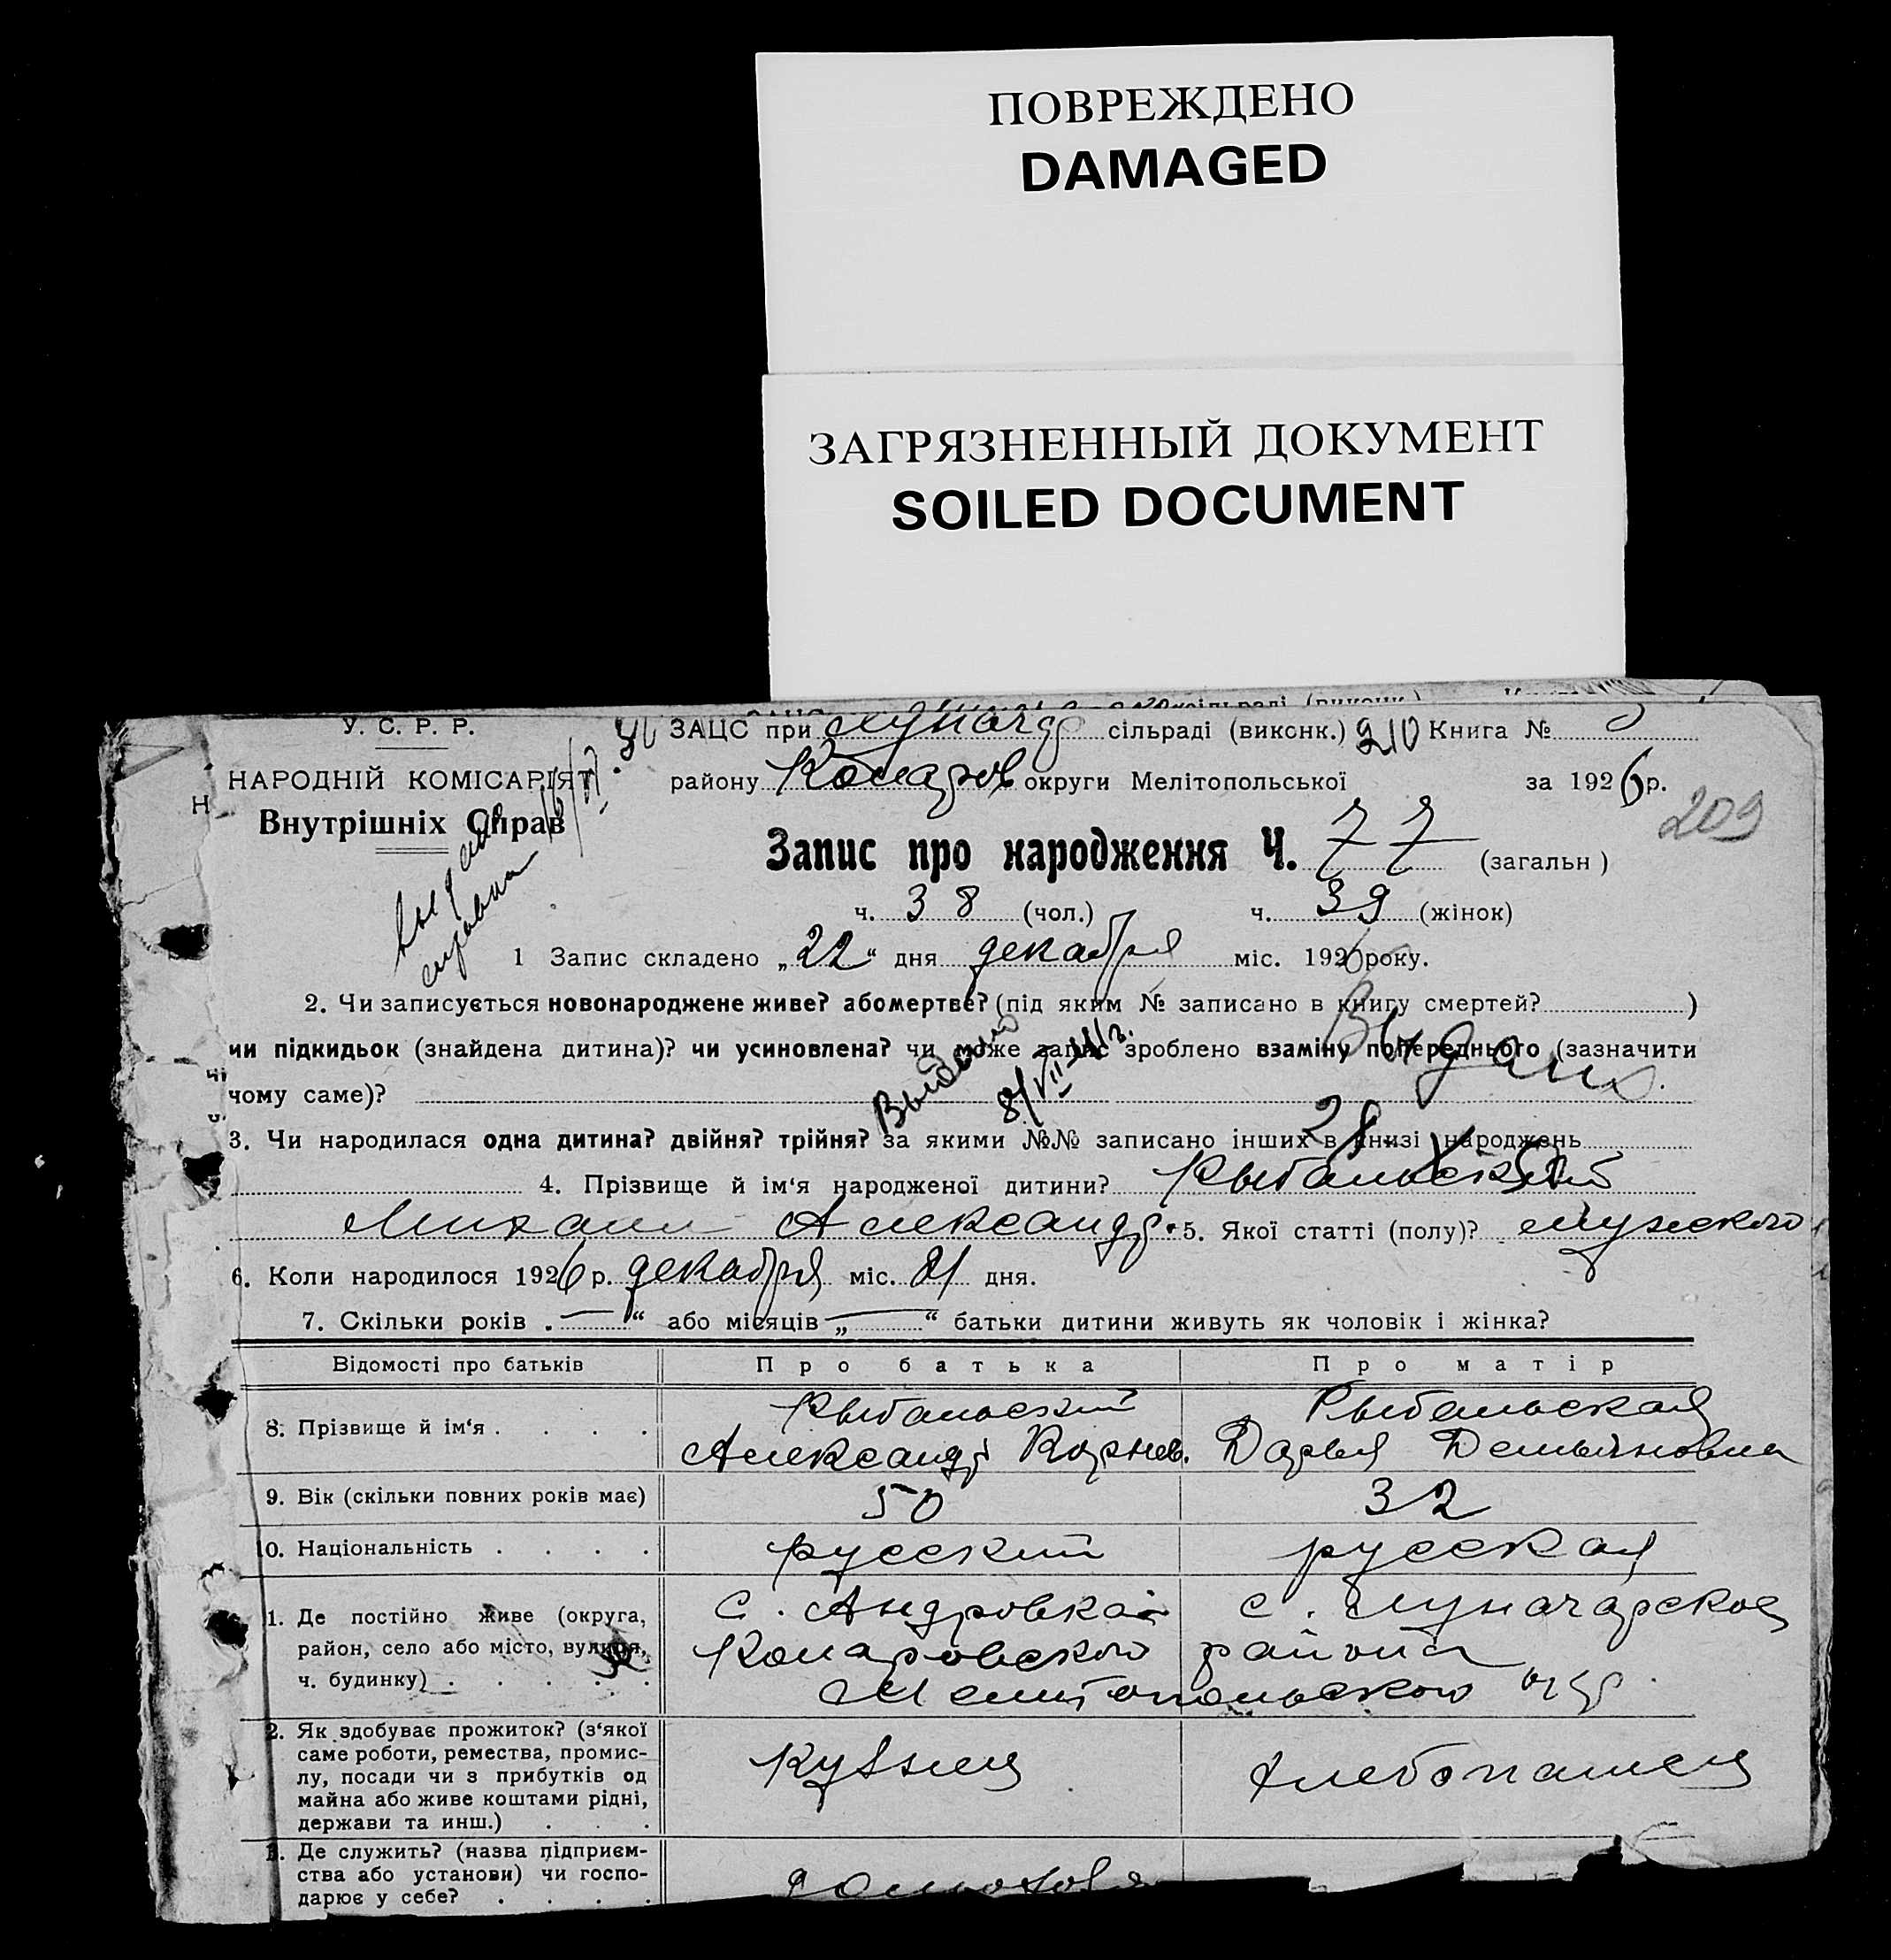 ПОВРЕЖДЕНО
DAMAGED
ЗАГРЯЗНЕННЫЙ ДОКУМЕНТ
SOILED DOCUMENT
У. С. Р. Р.
НАРОДНІЙ КОМІСАРІЯТ
Внутрішніх Справ
ЗАЦС при Луначар сільраді (виконк.) 210 Книга №
району Комаров округи Мелітопольської за 1926 р.
209
Запис про народження Ч. 77 (загальн )
ч. 38 (чол.) ч. 39 (жінок)
1 Запис складено „22“ дня декабря міс. 1926 року.
2. Чи записується новонароджене живе? або мертве? (під яким № записано в книгу смертей? )
чи підкидьок (знайдена дитина)? чи усиновлена? чи може запис зроблено взаміну попереднього (зазначити
чому саме)?
Выдано
8/VII-41г.
3. Чи народилася одна дитина? двійня? трійня? за якими №№ записано інших в книзі народжень
4. Прізвище й ім‘я народженої дитини? Рыбальский
Михаил Александр. 5. Якої статті (полу)? мужского
6. Коли народилося 1926 р. декабря міс. 21 дня.
7. Скільки років „—“ або місяців „—“ батьки дитини живуть як чоловік і жінка?
Відомості про батьків Про батька Про матір
8. Прізвище й ім‘я . . . . Рыбальский Рыбальская
Александр Корнеев. Дарья Демьяновна
9. Вік (скільки повних років має) 50 32
10. Національність . . . . русский русская
1. Де постійно живе (округа, с. Андровка с. Луначарское
район, село або місто, вулиця, Комаровского района
ч. будинку) . . . . . Мелитопольского окр.
2. Як здобуває прожиток? (з‘якої
саме роботи, ремества, промис-
лу, посади чи з прибутків од Кузнец Хлебопашец
майна або живе коштами рідні,
держави та инш.) . . .
3. Де служить? (назва підприєм-
ства або установи) чи госпо-
дарює у себе? . . . .